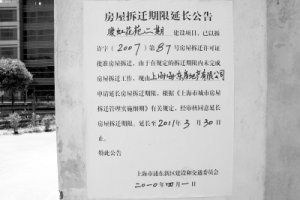 房屋拆迁期限延长公告
虞虹花苑二期 建设项目，已以拆
许字（2007）第87号房屋拆迁许可证
批准房屋拆迁，由于在规定的拆迁期限内未完成
房屋拆迁工作，现由上海浦东房地产有限公司
申请延长房屋拆迁期限，根据《上海市城市房屋
拆迁管理实施细则》有关规定，经审核同意延长
拆迁期限。延长至2011年3月30日
止。
特此公告
上海市浦东新区建设和交通委员会
二0一0年四月一日